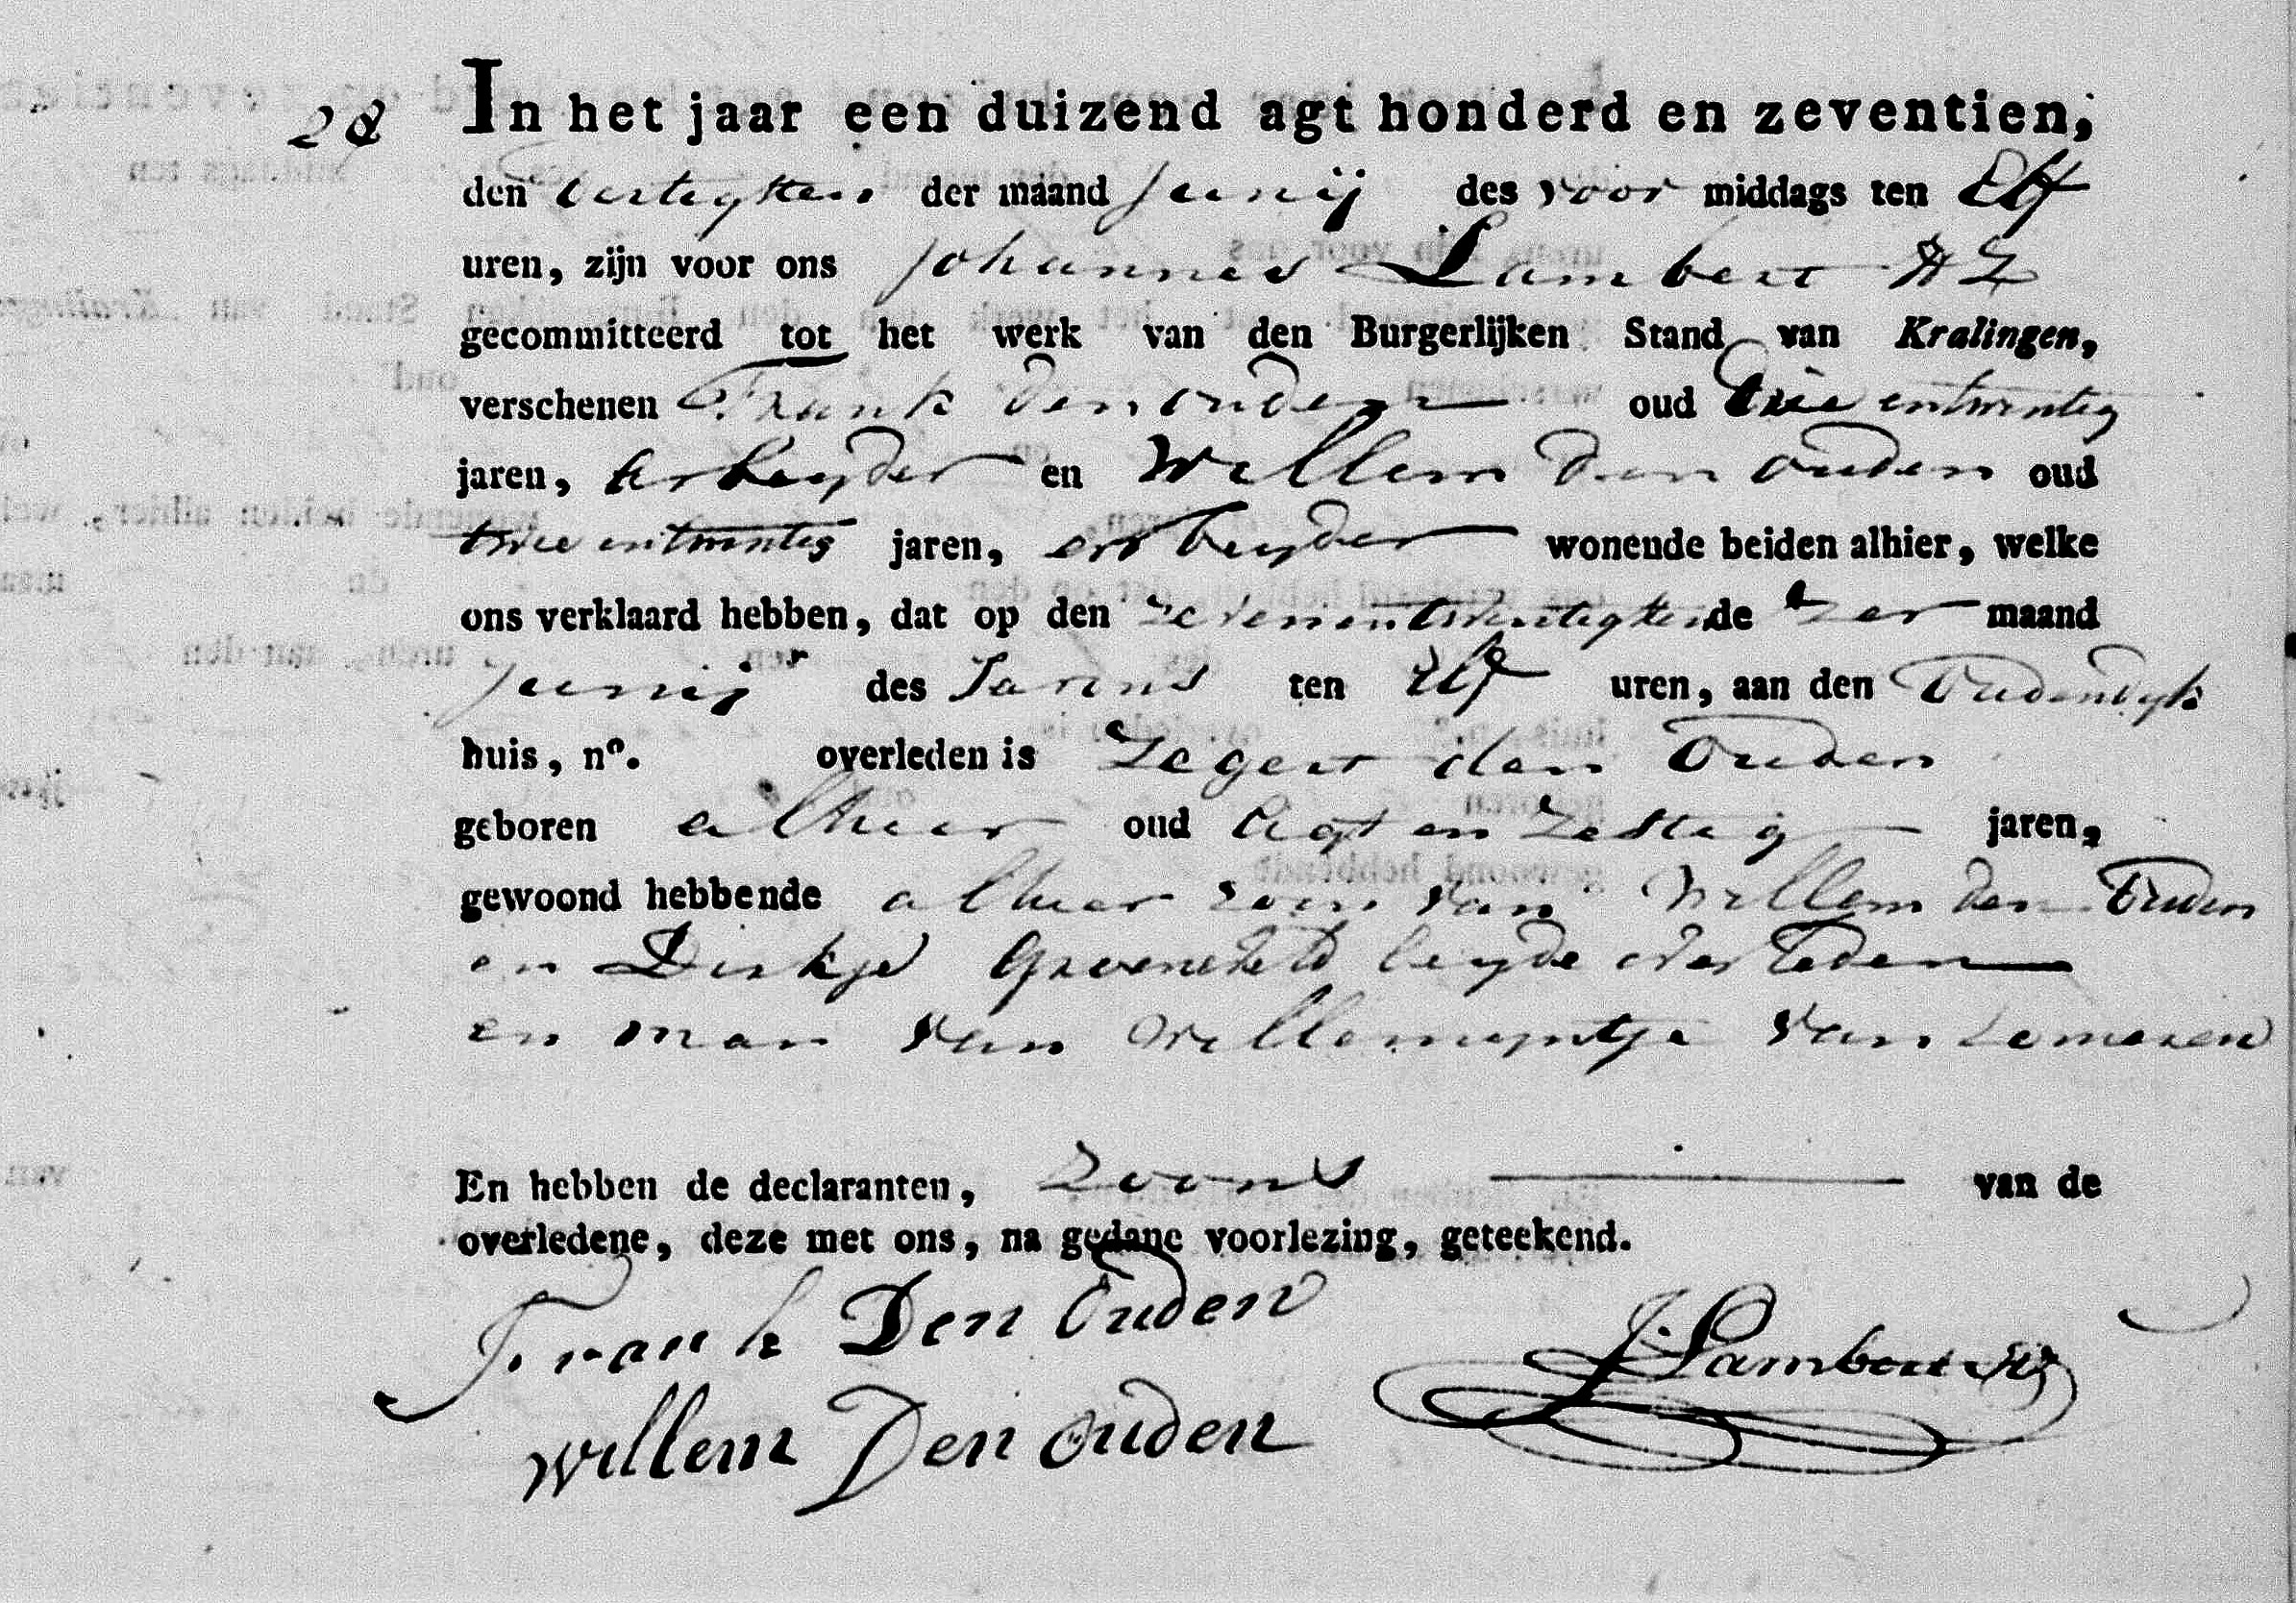 28
In het jaar een duizend agt honderd en zeventien,
den dertigsten der maand Junij des voor middags ten Elf
uren, zijn voor ons Johannes Lambert HZ
gecommitteerd tot het werk van den Burgerlijken Stand van Kralingen,
verschenen Frank den ouden oud drie entwintig
jaren, arbeyder en Willem den ouden oud
twee entwintig jaren, arbeyder wonende beiden alhier, welke
ons verklaard hebben, dat op den zevenentwintigsten de zer maand
Junij des avonds ten Elf uren, aan den Oudendyk
huis, no. overleden is Zeger den Ouden
geboren alhier oud Agt en zestig jaren,
gewoond hebbende alhier zoon van Willem den Ouden
en Dirkje Groeneveld beyde overleden
en man van Willemyntje van
En hebben de declaranten, zoons van de
overledene, deze met ons, na gedane voorlezing, geteekend.
Frank Den Ouden
J. Lambert HZ
Willem Den Ouden